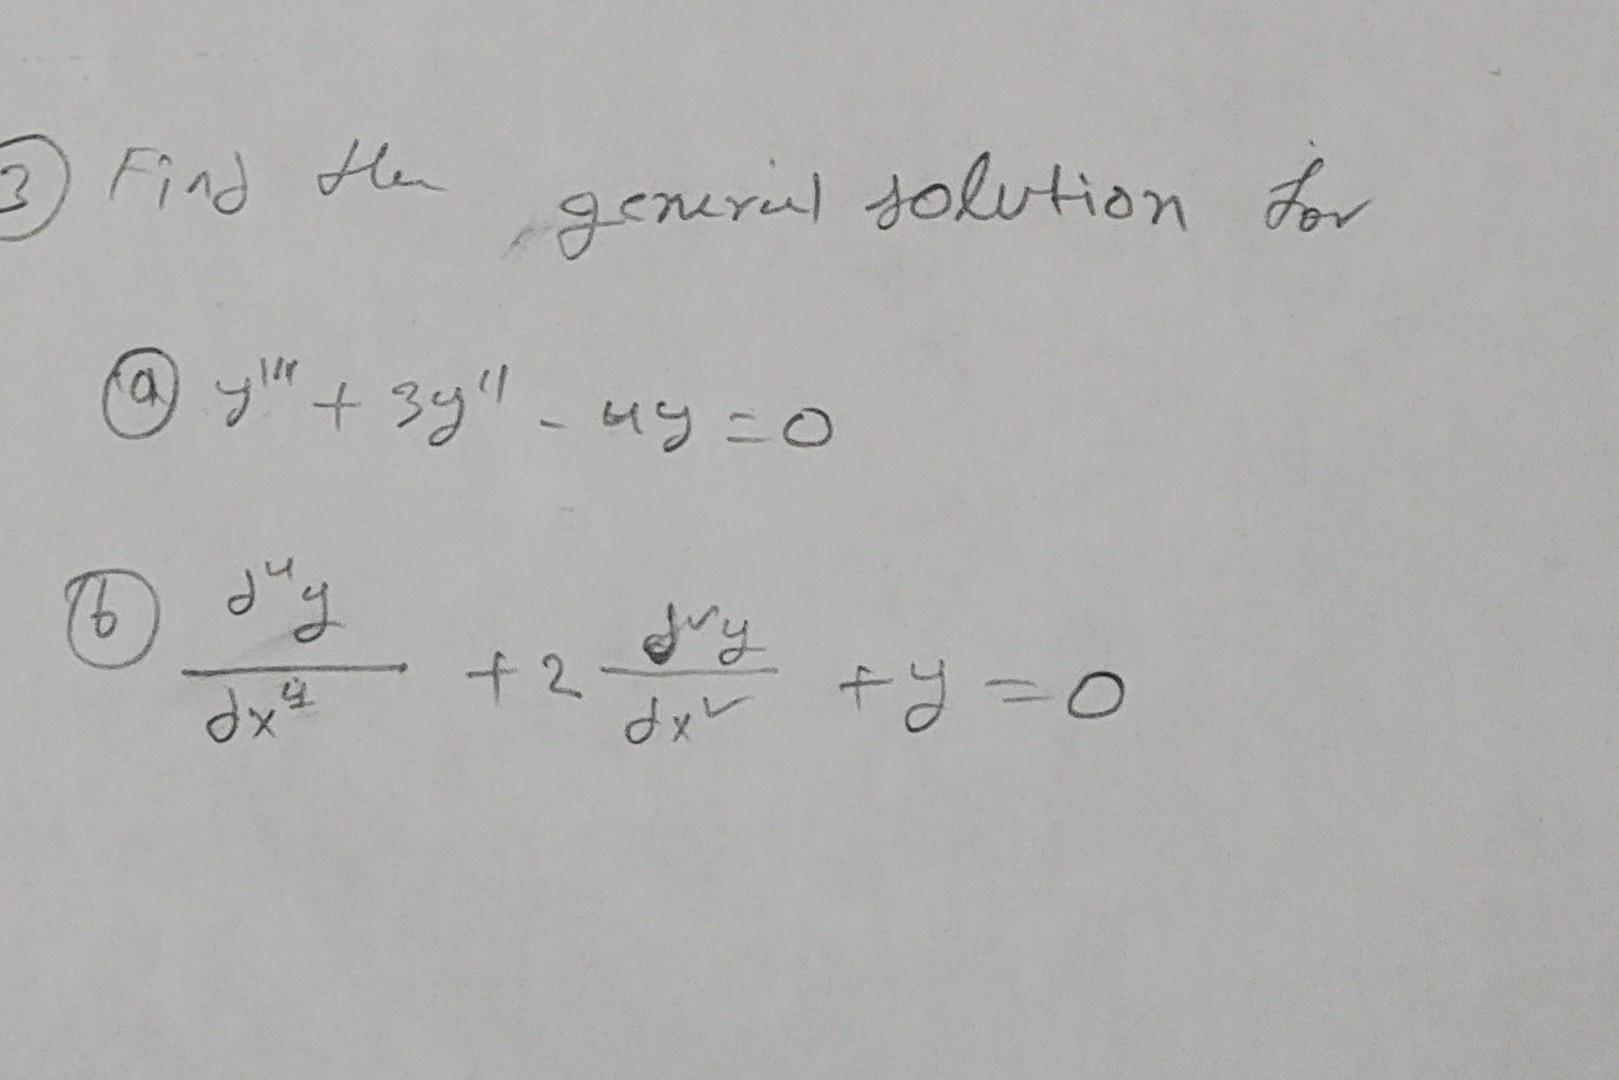 ③ Find the general solution for
ⓐ y''' + 3y'' - 4y = 0
ⓑ d⁴y/dx⁴ + 2 d²y/dx² + y = 0